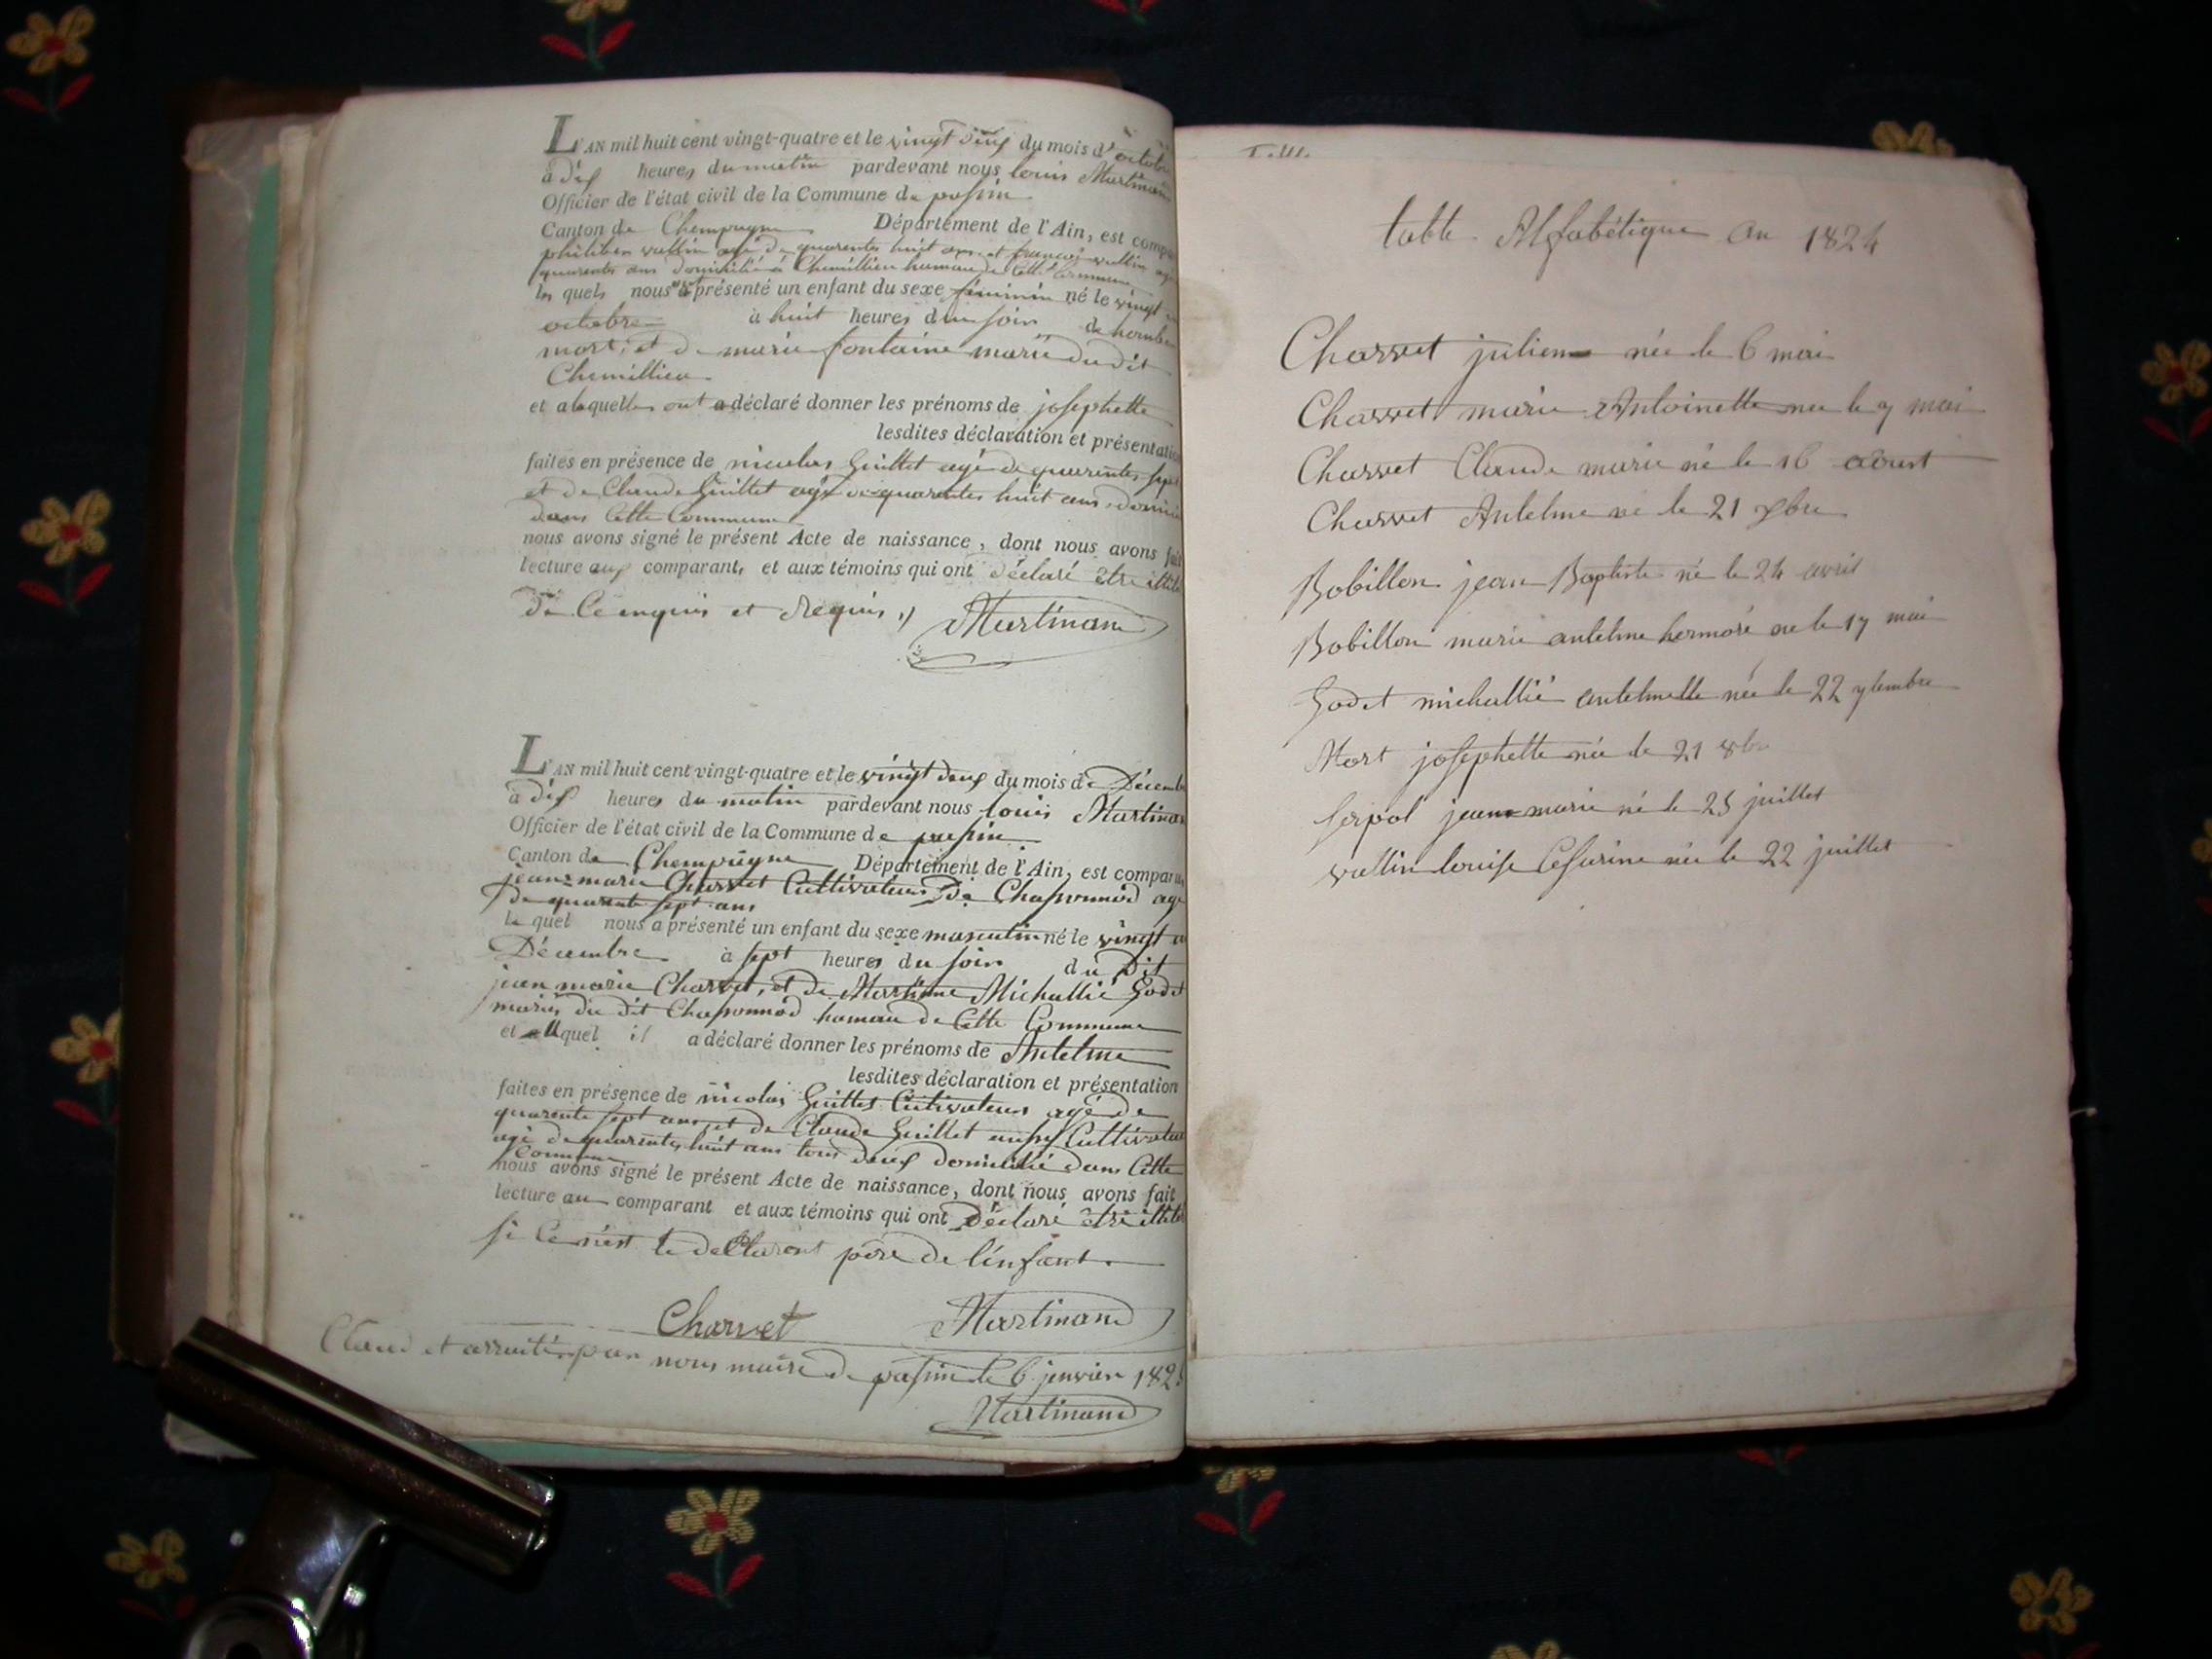 L'AN mil huit cent vingt-quatre et le vingt deux du mois d'octobre
à dix heures du matin pardevant nous louis Martinand
Officier de l'état civil de la Commune de passin
Canton de Champagne Département de l'Ain, est compa
philiber vallin agé de quarentes huit ans et françois vallin agé
quarentes ans domicilié à Chemillieu hamau de Cette Commune
les quels nous ont présenté un enfant du sexe féminin né le vingt
octobre à huit heures du soir de
mort, et de marie fontaine marié du dit
Chemillieu
et a laquelles ont a déclaré donner les prénoms de josephette
lesdites déclaration et présentation
faites en présence de nicolas Guillet agé de quarentes sept
et de Claude Guillet agé de quarentes huit ans, domici
dans Cette Commune
nous avons signé le présent Acte de naissance, dont nous avons fait
lecture aux comparants et aux témoins qui ont déclaré être illité
de Ce enquis et Requis // Martinand
L'AN mil huit cent vingt-quatre et le vingt deux du mois de Décembre
à dix heures du matin pardevant nous louis Martinand
Officier de l'état civil de la Commune de passin
Canton de Champagne Département de l'Ain, est comparu
jean-marie Charvet Cultivateur De Chasonnod agé
De quarente sept ans
le quel nous a présenté un enfant du sexe masculin né le vingt un
Décembre à sept heures du soir du Dit
jean marie Charvet, et de Martinne Michallié Godet
mariés du dit Chasonnod hamau de Cette Commune
et auquel il a déclaré donner les prénoms de Antelme
lesdites déclaration et présentation
faites en présence de nicolas Guillet Cultivateur agé de
quarente sept ans et de Claude Guillet aussy Cultivateur
agé de quarentes huit ans tous deux domicilié dans Cette
Commune
nous avons signé le présent Acte de naissance, dont nous avons fait
lecture au comparant et aux témoins qui ont Déclaré être illité
si Ce n'est le déClarent père de l'enfant.
Charvet Martinand
Claud et arruité par nous maire de passin le 6 janvier 182
Martinand
Table
table Alfabétique an 1824
Charvet julien née le 6 mai
Charvet marie Antoinette nee le 7 mai
Charvet Claude marie né le 16 aôust
Charvet Antelme né le 21 xbre
Bobillon jean Baptiste né le 24 avril
Bobillon marie antelme hermoré ne le 17 mai
Godet michallié antelmette née le 22 7tembre
Mort josephette née le 21 8bre
serpol jean marie né le 25 juillet
vallin louise Cesarine née le 22 juillet